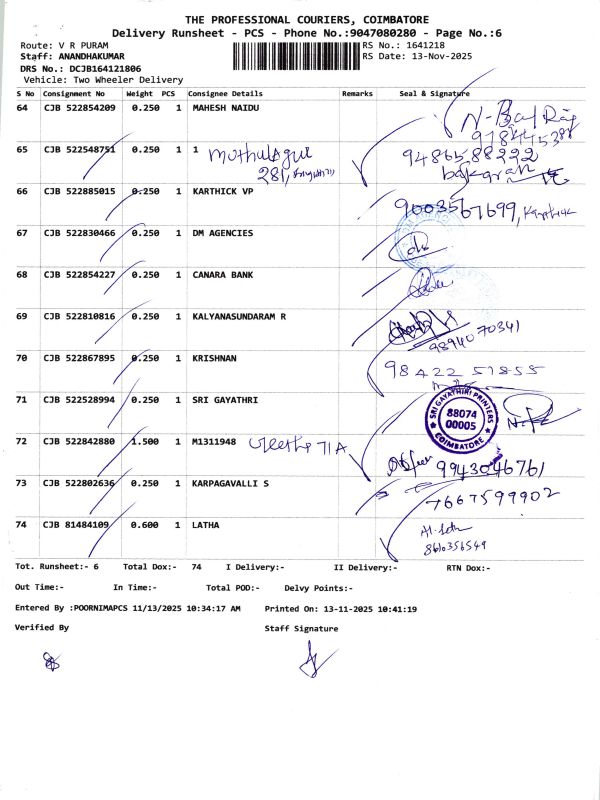 THE PROFESSIONAL COURIERS, COIMBATORE
Delivery Runsheet - PCS - Phone No.:9047080280 - Page No.:6
Route: V R PURAM RS No.: 1641218
Staff: ANANDHAKUMAR RS Date: 13-Nov-2025
DRS No.: DCJB164121806
Vehicle: Two Wheeler Delivery
S No Consignment No Weight PCS Consignee Details Remarks Seal & Signature
64 CJB 522854209 0.250 1 MAHESH NAIDU
65 CJB 522548751 0.250 1 1
9486588222
66 CJB 522885015 0.250 1 KARTHICK VP
9003567699, Karthick
67 CJB 522830466 0.250 1 DM AGENCIES
68 CJB 522854227 0.250 1 CANARA BANK
69 CJB 522810816 0.250 1 KALYANASUNDARAM R
9894070341
70 CJB 522867895 0.250 1 KRISHNAN
98422 51855
71 CJB 522528994 0.250 1 SRI GAYATHRI
SRI GAYATHIRI PRINTERS
88074
00005
COIMBATORE
72 CJB 522842880 1.500 1 M1311948 71A
9943046761
73 CJB 522802636 0.250 1 KARPAGAVALLI S
7667599902
74 CJB 81484109 0.600 1 LATHA
8610356549
Tot. Runsheet:- 6 Total Dox:- 74 I Delivery:- II Delivery:- RTN Dox:-
Out Time:- In Time:- Total POD:- Delvy Points:-
Entered By :POORNIMAPCS 11/13/2025 10:34:17 AM Printed On: 13-11-2025 10:41:19
Verified By Staff Signature